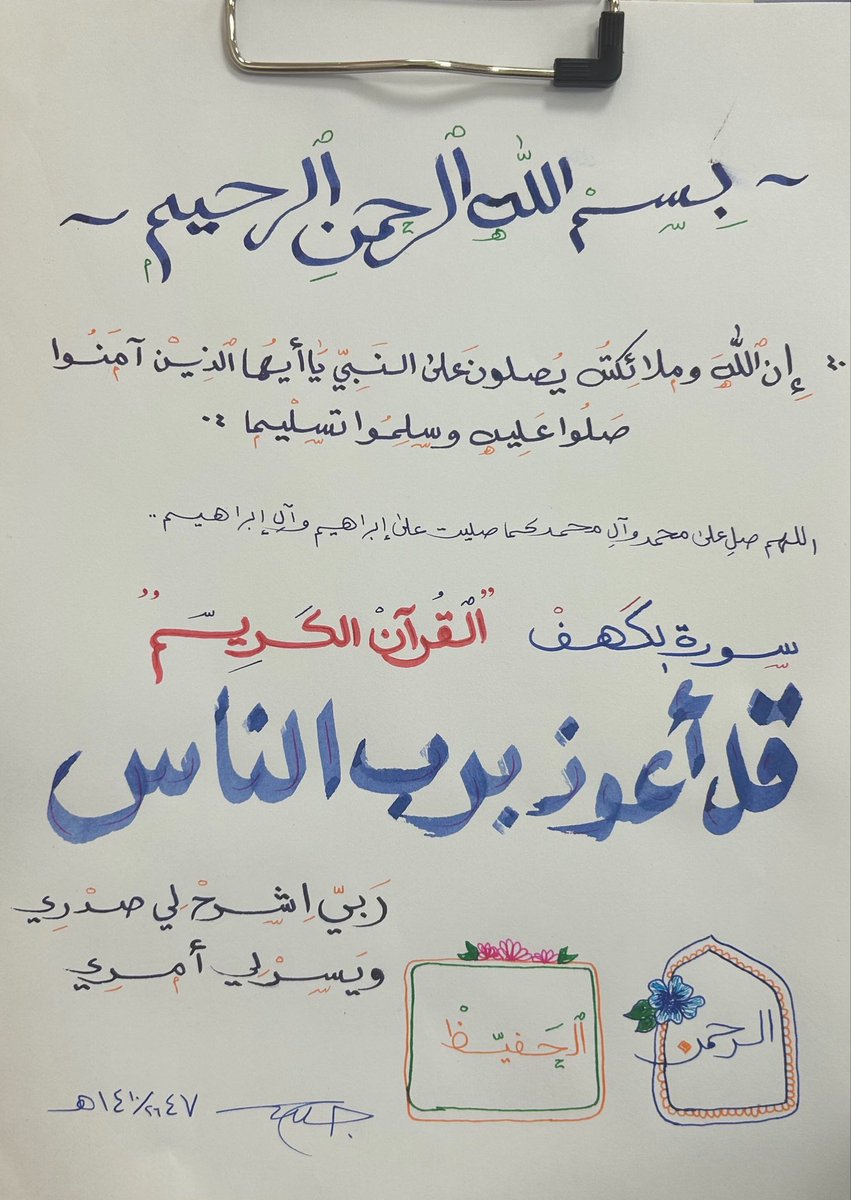 ~ بِسِّمْ اللّٰهِ ٱلرحمنِ ٱلرحيم ~
إِن ٱللّٰهَ وملائِكتُه يُصلونَ عَلىٰ النَبيِّ يَا أيُها ٱلذِيْن آمَنُوا
صَلُوا عَليهِ وسلِمُوا تسْليما
اللهم صلِ علىٰ محمد وآلِ محمد كما صليت علىٰ إبراهيم وآلِ إبراهيم..
سِّورة بكَهفْ "ٱلْقُرآنْ الكَرِيّم"
قل أعوذ برب الناس
رَبيِّ اِشرحْ لِي صدْرِي
ويَسِرْ لِي أمرِي
ٱلْحَفيّظْ
الرحمن